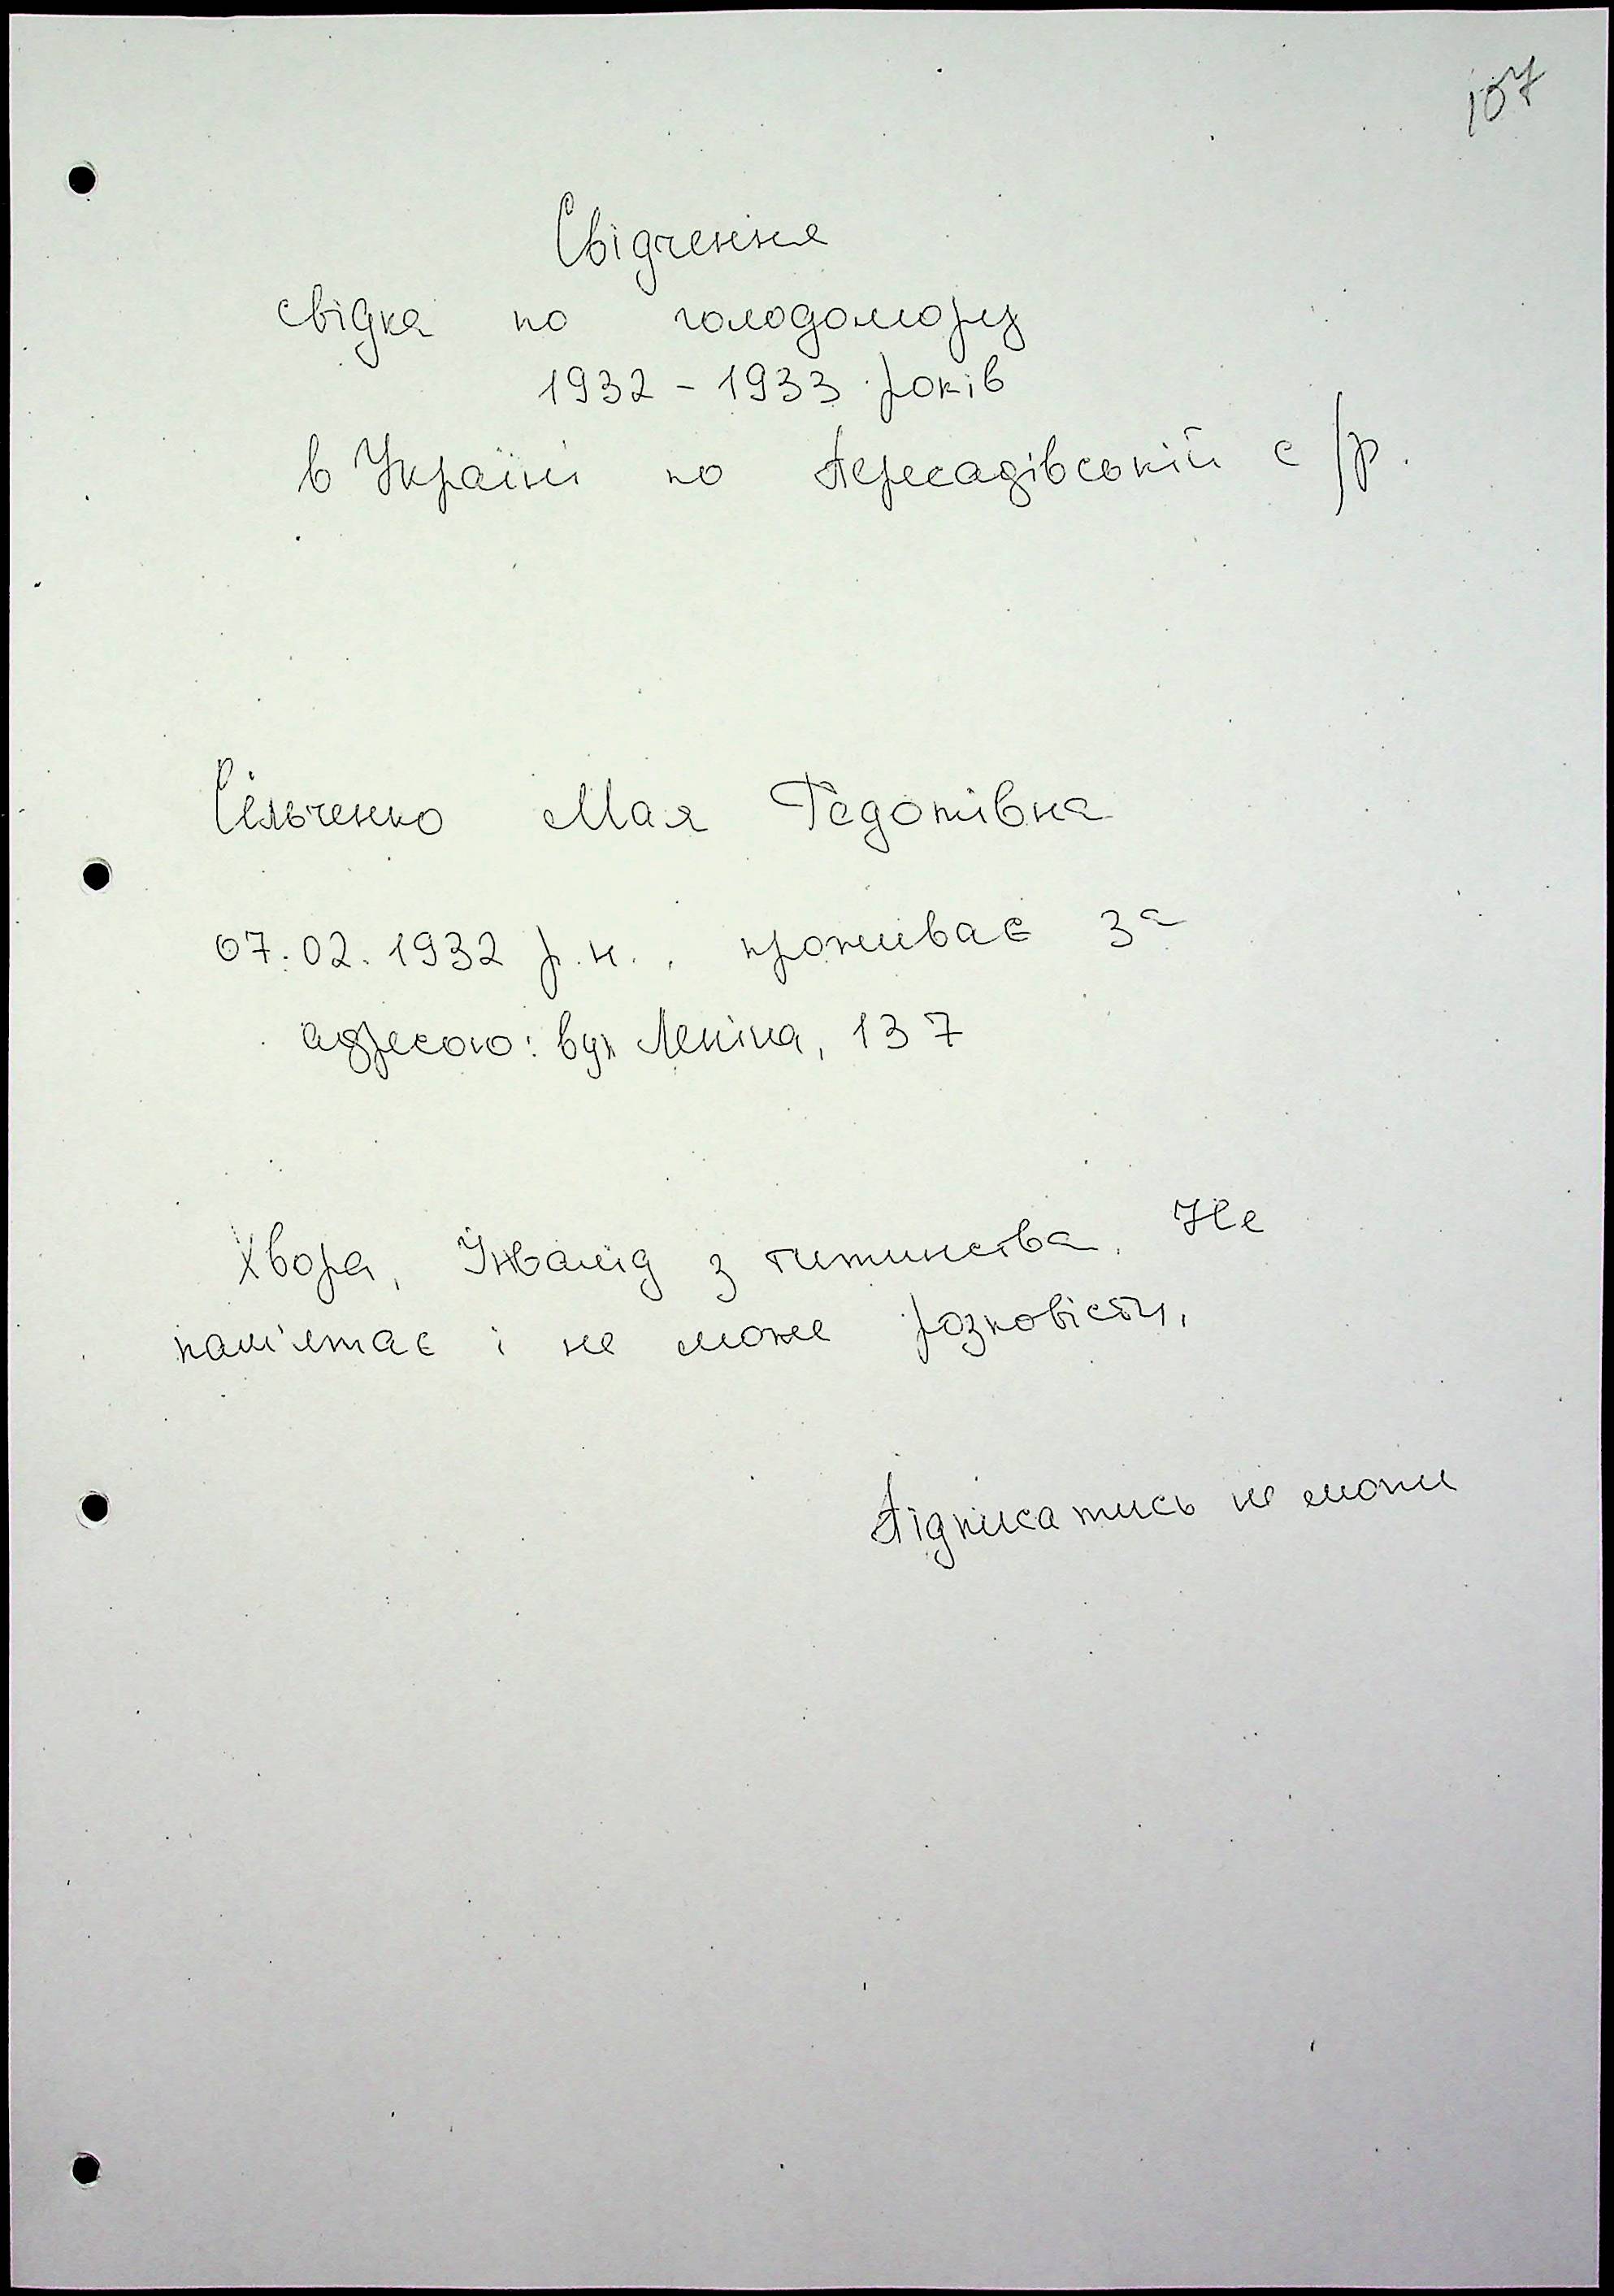 107
Свідчення
свідка по голодомору
1932 - 1933 років
в Україні по Пересадівській с/р.
Сільченко Мая Федотівна
07.02.1932 р.н., проживає за
адресою: вул Леніна, 137
Хвора, Інвалід з дитинства. Не
пам'ятає і не може розповісти.
Підписатись не може